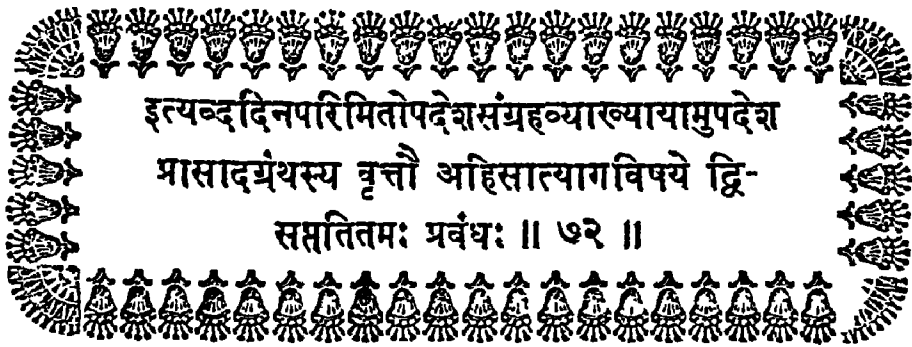 इत्यब्ददिनपरिमितोपदेशसंग्रहव्याख्यायामुपदेश
प्रासादग्रंथस्य वृत्तौ अहिसात्यागविषये द्वि-
सप्ततितमः प्रवंधः ॥ ७२ ॥